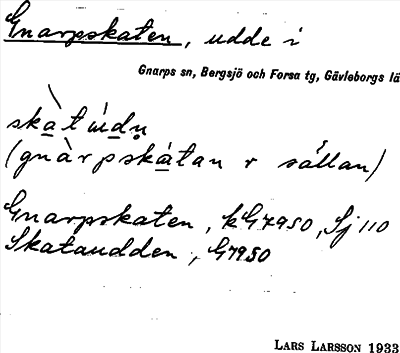 Gnarpskaten, udde i
Gnarps sn, Bergsjö och Forsa tg, Gävleborgs lä
skàtúdn
(gnàrpskàtan r sällan)
Gnarpskaten, kG7950, Sj 110
Skataudden, G7950
LARS LARSSON 1933